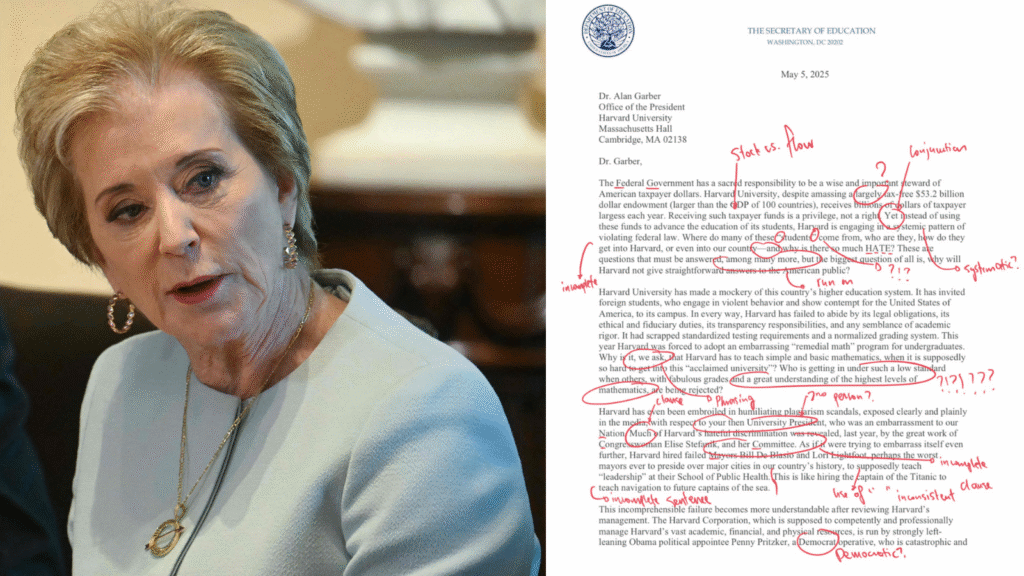 THE SECRETARY OF EDUCATION
WASHINGTON, DC 20202
May 5, 2025
Dr. Alan Garber
Office of the President
Harvard University
Massachusetts Hall
Cambridge, MA 02138
Dr. Garber,
Stock vs. flow
?
Conjunction
The Federal Government has a sacred responsibility to be a wise and important steward of
American taxpayer dollars. Harvard University, despite amassing a largely tax-free $53.2 billion
dollar endowment (larger than the GDP of 100 countries), receives billions of dollars of taxpayer
largess each year. Receiving such taxpayer funds is a privilege, not a right. Yet instead of using
these funds to advance the education of its students, Harvard is engaging in a systemic pattern of
violating federal law. Where do many of these students come from, who are they, how do they
get into Harvard, or even into our country—and why is there so much HATE? These are
questions that must be answered, among many more, but the biggest question of all is, why will
Harvard not give straightforward answers to the American public?
?!?
systematic?
incomplete
run on
Harvard University has made a mockery of this country's higher education system. It has invited
foreign students, who engage in violent behavior and show contempt for the United States of
America, to its campus. In every way, Harvard has failed to abide by its legal obligations, its
ethical and fiduciary duties, its transparency responsibilities, and any semblance of academic
rigor. It had scrapped standardized testing requirements and a normalized grading system. This
year Harvard was forced to adopt an embarrassing "remedial math" program for undergraduates.
Why is it, we ask, that Harvard has to teach simple and basic mathematics, when it is supposedly
so hard to get into this "acclaimed university"? Who is getting in under such a low standard
when others, with fabulous grades and a great understanding of the highest levels of
mathematics, are being rejected?
?!?!???
clause
Phrasing
?no person?
Harvard has even been embroiled in humiliating plagiarism scandals, exposed clearly and plainly
in the media, with respect to your then University President, who was an embarrassment to our
Nation. Much of Harvard's hateful discrimination was revealed, last year, by the great work of
Congresswoman Elise Stefanik, and her Committee. As if it were trying to embarrass itself even
further, Harvard hired failed Mayors Bill De Blasio and Lori Lightfoot, perhaps the worst
mayors ever to preside over major cities in our country's history, to supposedly teach
"leadership" at their School of Public Health. This is like hiring the captain of the Titanic to
teach navigation to future captains of the sea.
incomplete
clause
use of " " inconsistent
incomplete sentence
This incomprehensible failure becomes more understandable after reviewing Harvard's
management. The Harvard Corporation, which is supposed to competently and professionally
manage Harvard's vast academic, financial, and physical resources, is run by strongly left-
leaning Obama political appointee Penny Pritzker, a Democrat operative, who is catastrophic and
Democratic?